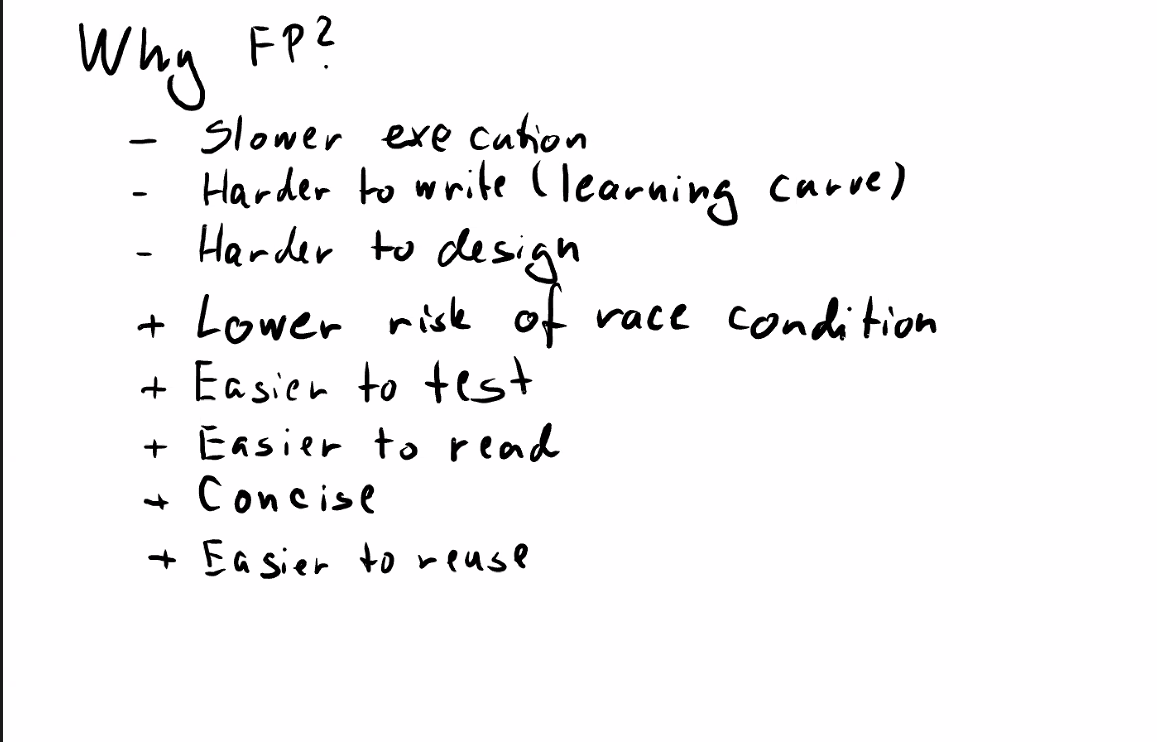 Why FP?
- Slower execution
- Harder to write (learning curve)
- Harder to design
+ Lower risk of race condition
+ Easier to test
+ Easier to read
+ Concise
+ Easier to reuse